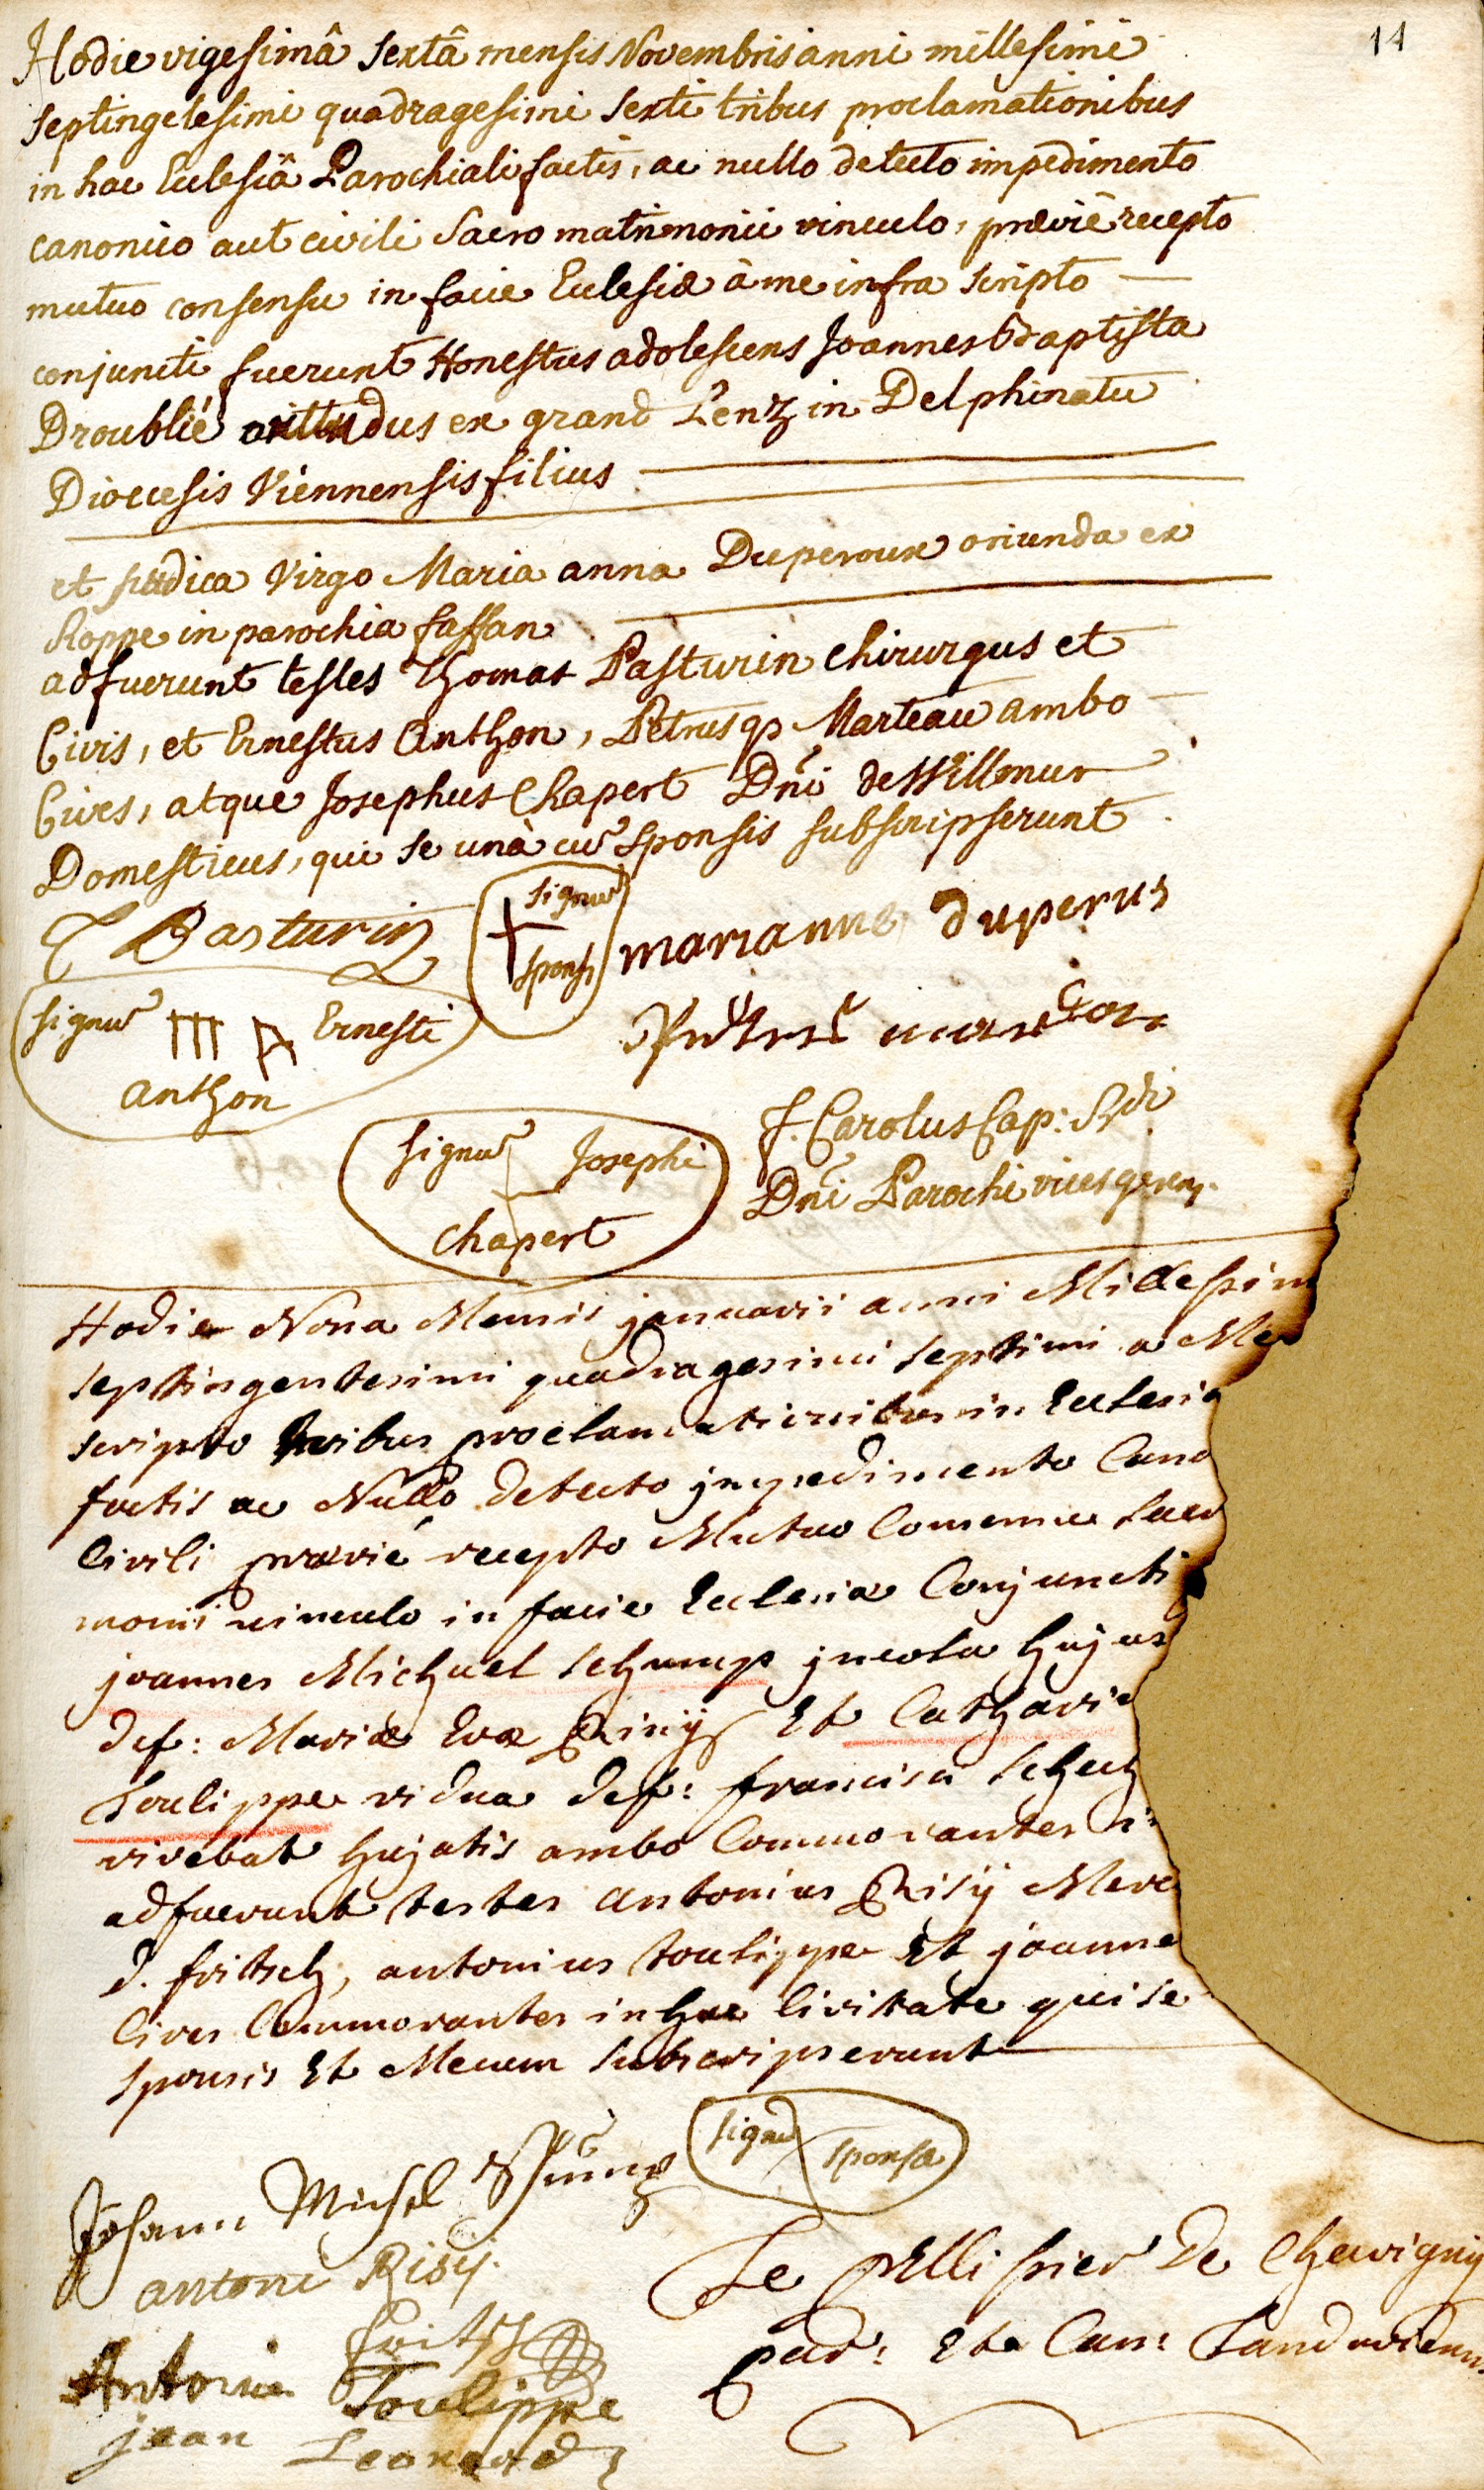 11
Hodie vigesimâ sextâ mensis Novembris anni millesimi
septingetesimi quadragesimi sexti tribus proclamationibus
in hac Ecclesiâ Parochiali factis, ac nullo detecto impedimento
canonico aut civili Sacro matrimonii vinculo, præviè recepto
mutuo consensu in facie Ecclesiæ à me infra scripto
conjuncti fuerunt Honestus adolescens Joannes Baptista
Droublié oriundus ex grand Lenz in Delphinatu
Dioecesis Viennensis filius
et pudica Virgo Maria anna Duperoux oriunda ex
Roppe in parochia fassan
adfuerunt testes Thomas Pasturin chirurgus et
Civis, et Ernestus Anthon, Petrusq Marteau ambo
Cives, atque Josephus Chapert Dni de Willemur
Domesticus, qui se unà cū sponsis subscripserunt
T Pasturin
signū
sponsi
marianne duperus
signū Ernesti
anthon
signū Josephi
Chapert
F. Carolus Cap: Rdi
Dni Parochi vices gerens.
Hodie Nona Mensis januarii anni Millesim
septingentesimi quadragesimi septimi a Me
scripto tribus proclamationibus in Ecclesia
factis ac Nullo detecto jmpedimento Cano
Civili præviè recepto Mutuo Consensu sacr
monii vinculo in facie Ecclesiæ Conjuncti
joannes Michael schump jncola hujus
def: Mariæ Evæ Et Catharin
Toulippe vidua def: francisci
vivebat hujatis ambo Commorantes in
adfuerunt testes antonius Risÿ Merc
d. fritsch, antonius toulippe Et joanne
Cives Commorantes in hac Civitate qui se
sponsis Et Mecum subscripserunt
signū sponsæ
Johann Michel Schump
antone Risÿ
fritsch
Antonie Toulippe
jean Leonard
Le pellissier De Chavigny
par: Et Can: